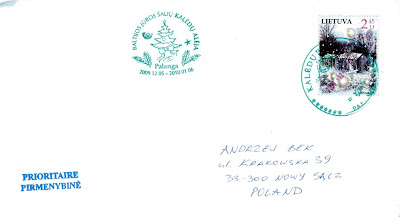 BALTIJOS JŪROS ŠALIŲ KALĖDŲ ALĖJA
Palanga
2009 12 05 - 2010 01 06
LIETUVA
2,45
Lt
KALĖDŲ
PAL
ANDRZEJ BEK
ul. KRAKOWSKA 39
33-300 NOWY SĄCZ
POLAND
PRIORITAIRE
PIRMENYBINĖ